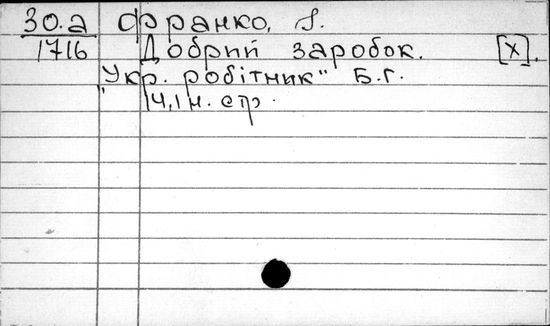 30.а Франко, І.
1716 Добрий заробок. [X].
"Укр. робітник" Б.г.
14,1 н. стр.